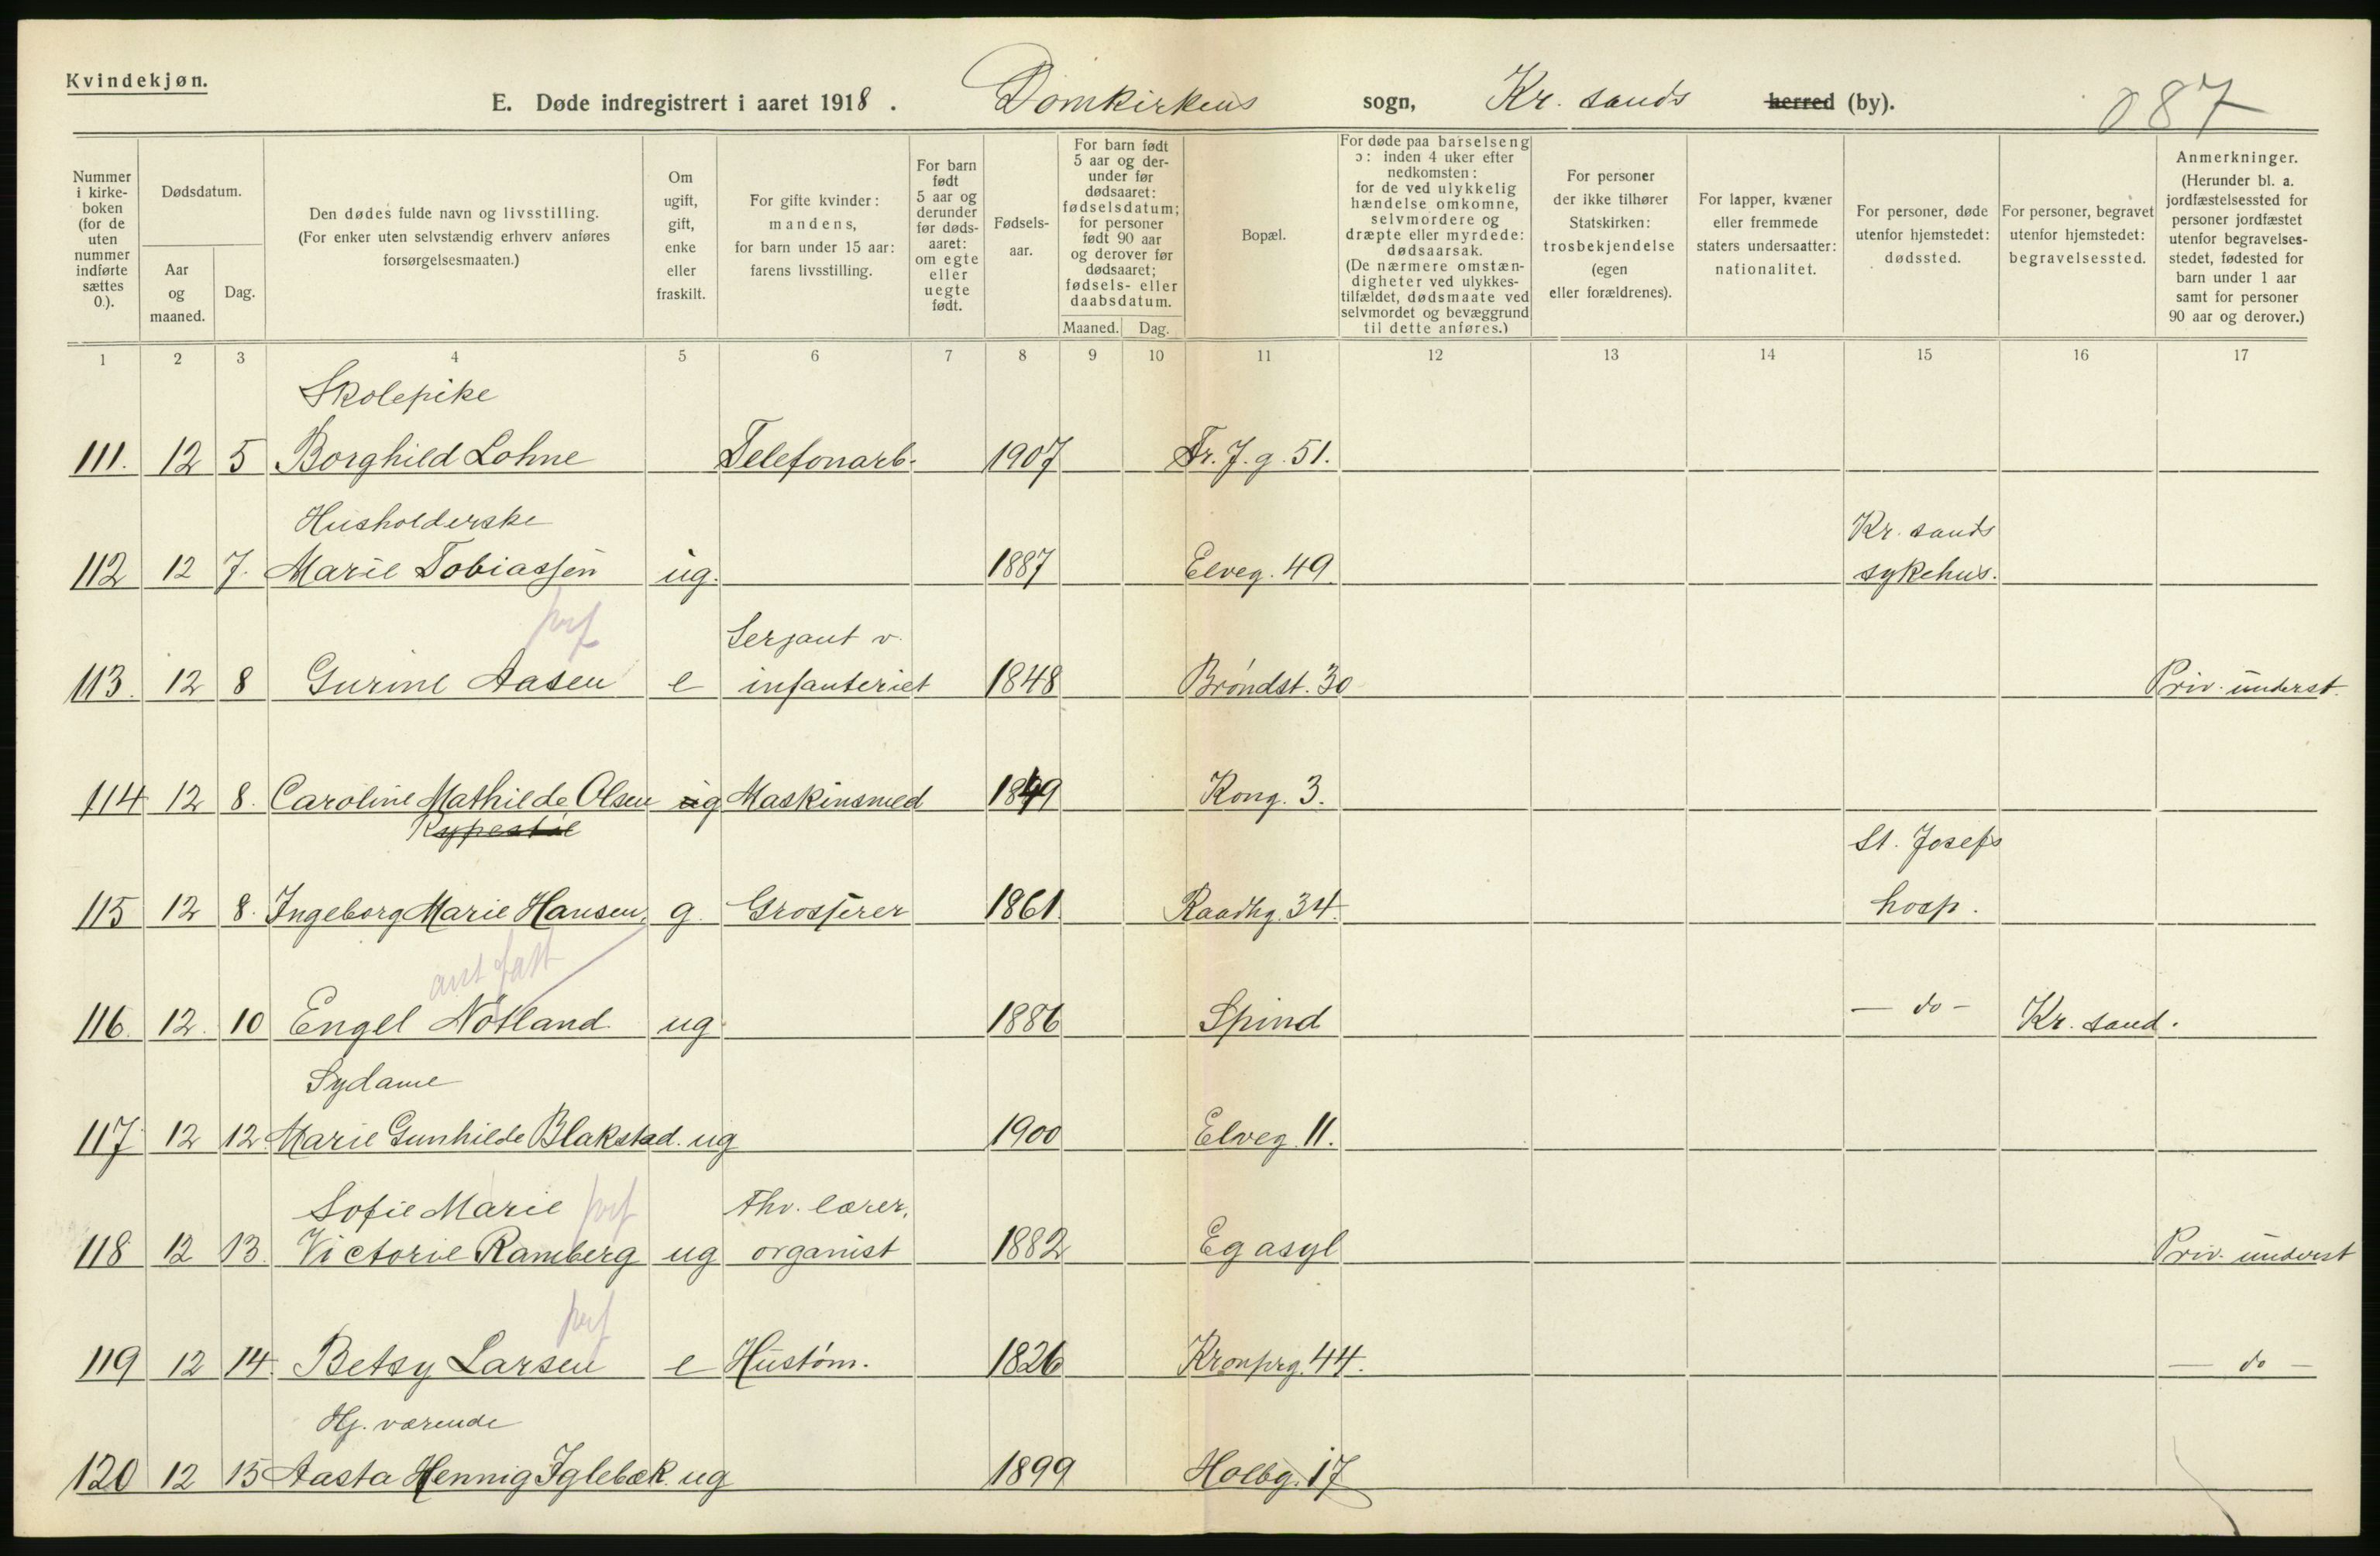 Kvindekjøn.
E. Døde indregistrert i aaret 1918. Domkirkens sogn, Kr. sands herred (by). 087
Nummer i kirke-boken (for de uten nummer indførte sættes 0.).
Dødsdatum.
Aar og maaned.
Dag.
Den dødes fulde navn og livsstilling.
(For enker uten selvstændig erhverv anføres forsørgelsesmaaten.)
Om ugift, gift, enke eller fraskilt.
For gifte kvinder: mandens, for barn under 15 aar: farens livsstilling.
For barn født 5 aar og derunder før døds-aaret: om egte eller uegte født.
Fødsels-aar.
For barn født 5 aar og der-under før dødsaaret: fødselsdatum; for personer født 90 aar og derover før dødsaaret; fødsels- eller daabsdatum.
Maaned. Dag.
Bopæl.
For døde paa barselseng ɔ: inden 4 uker efter nedkomsten: for de ved ulykkelig hændelse omkomne, selvmordere og dræpte eller myrdede: dødsaarsak.
(De nærmere omstæn-digheter ved ulykkes-tilfældet, dødsmaate ved selvmordet og bevæggrund til dette anføres.)
For personer der ikke tilhører Statskirken: trosbekjendelse (egen eller forældrenes).
For lapper, kvæner eller fremmede staters undersaatter: nationalitet.
For personer, døde utenfor hjemstedet: dødssted.
For personer, begravet utenfor hjemstedet: begravelsessted.
Anmerkninger.
(Herunder bl. a. jordfæstelsessted for personer jordfæstet utenfor begravelses-stedet, fødested for barn under 1 aar samt for personer 90 aar og derover.)
1 2 3 4 5 6 7 8 9 10 11 12 13 14 15 16 17
Skolepike
111. 12 5 Borghild Lohne Telefonarb. 1907 Tr. J. g. 51.
Husholderske Kr. sands
112 12 7. Marie Tobiassen ug. 1887 Elveg. 49. sykehus.
Serjant v.
113. 12 8 Gurine Aasen e infanteriet 1848 Brøndst. 30 Priv. underst.
114 12 8. Caroline Mathilde Olsen ug Maskinsmed 1849 Kong. 3.
St. Josefs
115 12 8. Ingeborg Marie Hansen, g. Grosserer 1861 Raadhg. 34. hosp.
116. 12. 10 Engel Nötland ug. 1886 Spind — do — Kr. sand.
Sydame
117 12 12. Marie Gunhilde Blakstad. ug 1900 Elveg. 11.
Sofie Marie Fhv. lærer,
118 12 13. Victorie Ramberg ug organist 1882 Eg asyl Priv. underst
119 12 14. Betsy Larsen e Hustøm. 1826 Kronprg. 44. — do —
Hj. værende
120 12 15 Aasta Hennig Iglebæk. ug 1899 Holbg. 17